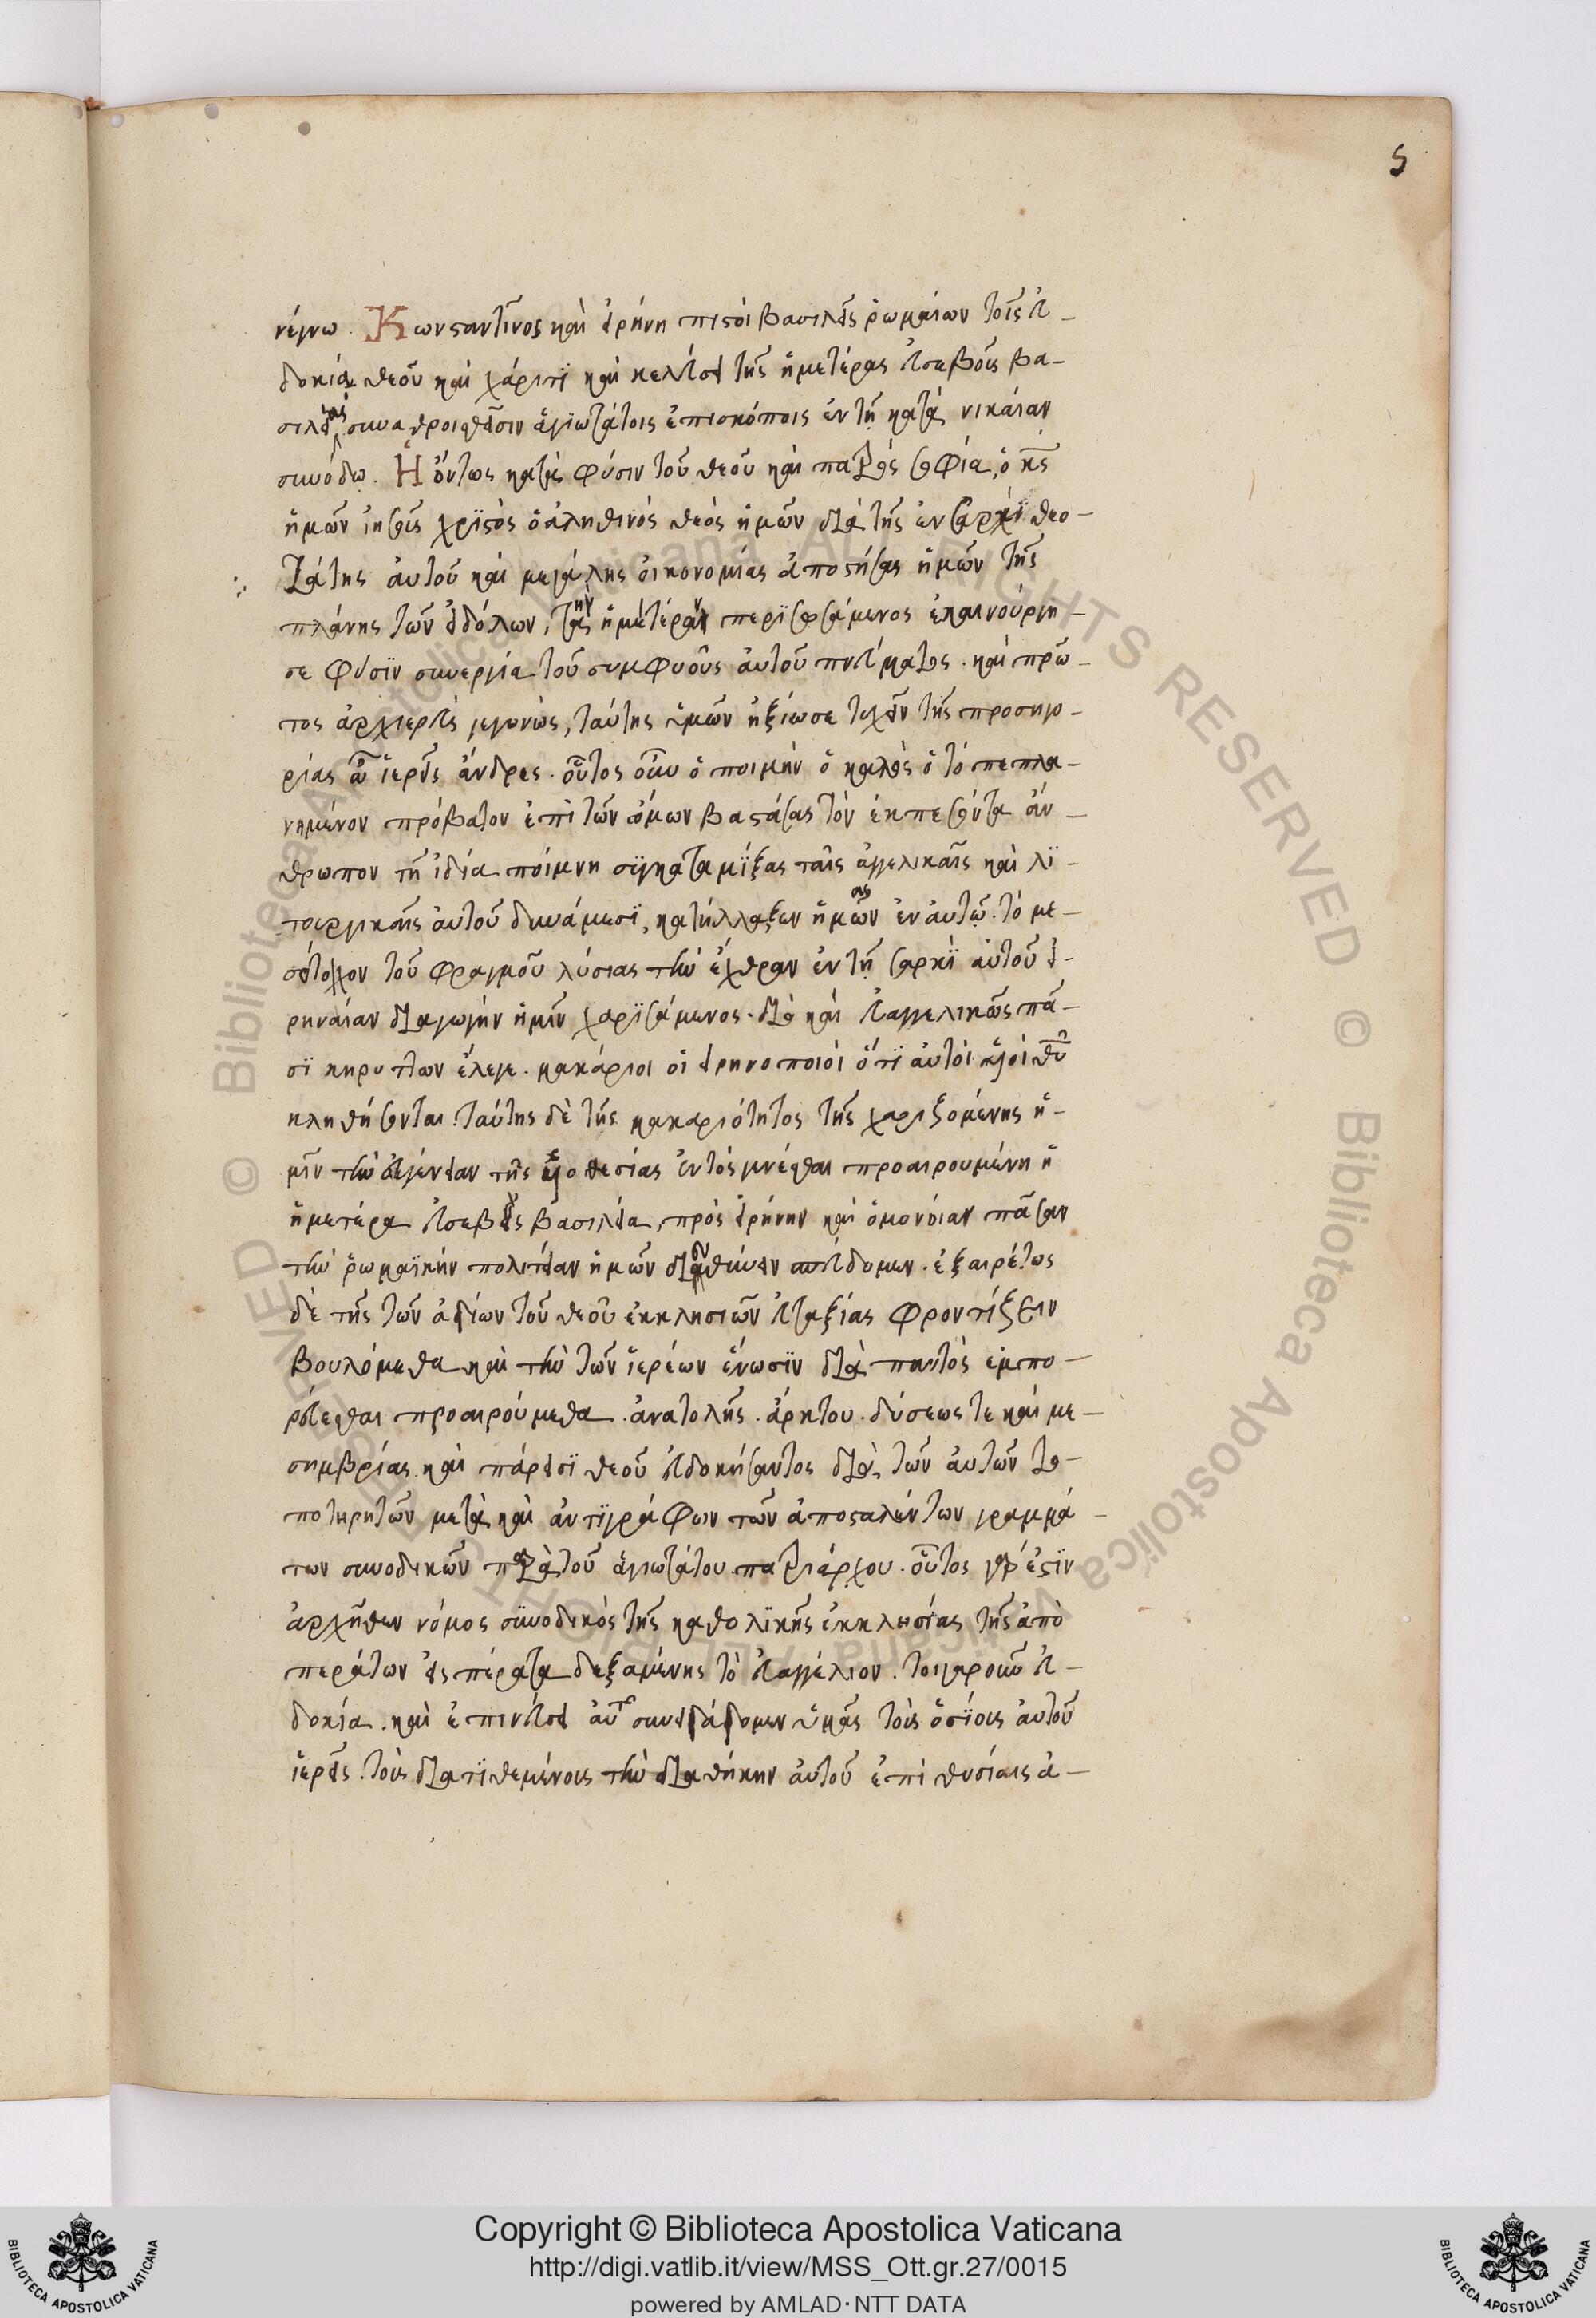 5
νέγνω. Κωνσταντῖνος καὶ εἰρήνη πιστοὶ βασιλεῖς ῥωμαίων τοῖς εὐ-
δοκία θεοῦ καὶ χάριτϊ καὶ κελεύσει τῆς ἡμετέρας εὐσεβοῦς βα-
σιλείας συναθροισθεῖσιν ἁγϊωτάτοις ἐπισκόποις ἐν τῇ κατὰ νικαίαν
συνόδω. Ἡ ὄντως κατὰ φύσιν τοῦ θεοῦ καὶ πατρὸς σοφία, ὁ κς
ἡμῶν ἰησοῦς χρϊστὸς ὁ ἀληθινὸς θεὸς ἡμῶν διὰ τῆς ἐν σαρκὶ θεο-
τάτης αὐτοῦ καὶ μεγάλης οἰκονομίας ἀποστήσας ἡμῶν τῆς
πλάνης τῶν εἰδόλων, τὴν ἡμετέραν περϊσωσάμενος ἐκαινούργη-
σε φύσϊν συνεργία τοῦ συμφυοῦς αὐτοῦ πνεύματος. καὶ πρῶ-
τος ἀρχιερεὺς γεγονὼς, ταύτης ὑμῶν ἠξίωσε τυχεῖν τῆς προσηγο-
ρίας ὦ ἱερεῖς ἄνδρες. οὗτος οὖν ὁ ποιμὴν ὁ καλὸς ὁ τὸ πεπλα-
νημένον πρόβατον ἐπὶ τῶν ὤμων βαστάσας τὸν ἐκπεσόντα ἄν-
θρωπον τῇ ἰδία ποίμνη σϋγκαταμίξας ταῖς ἀγγελικαῖς καὶ λϊ-
τουργικαῖς αὐτοῦ δυνάμεσϊ, κατήλλαξεν ἡμᾶς ἐν αὐτῷ. τὸ με-
σότοιχον τοῦ φραγμοῦ λύσιας τὴν ἔχθραν ἐν τῇ σαρκὶ αὐτοῦ εἰ-
ρηναίαν διαγωγὴν ἡμῖν χαρϊσάμενος. διὸ καὶ εὐαγγελικῶς πᾶ-
σϊ κηρυττων ἔλεγε. μακάριοι οἱ εἰρηνοποιοὶ ὅτϊ αὐτοὶ υἱοὶ θυ
κληθήσονται. ταύτης δὲ τῆς μακαριότητος τῆς χαριζομένης ἡ-
μῖν τὴν εὐγένειαν τῆς υἱοθεσίας ἐντὸς γενέσθαι προαιρουμένη ἡ
ἡμετέρα εὐσεβὴς βασιλεία, πρὸς εἰρήνην καὶ ὁμονοίαν πᾶσαν
τὴν ῥωμαϊκὴν πολιτείαν ἡμῶν διευθύνειν σπεύδομεν. ἐξαιρέτως
δὲ τῆς τῶν ἁγίων τοῦ θεοῦ ἐκκλησιῶν εὐταξίας φροντίζειν
βουλόμεθα καὶ τὴν τῶν ἱερέων ἕνωσϊν διὰ παντὸς ἐμπο-
ρεύεσθαι προαιρούμεθα. ἀνατολῆς. ἄρκτου. δύσεως τε καὶ με-
σημβρίας. καὶ πάρεισϊ θεοῦ εὐδοκήσαντος διὰ τῶν αὐτῶν το-
ποτηρητῶν μετὰ καὶ ἀντϊγράφων τῶν ἀποσταλέντων γραμμά-
των συνοδικῶν παρὰ τοῦ ἁγιωτάτου πατριάρχου. οὗτος γάρ ἐστϊν
ἀρχῆθεν νόμος σϋνοδικὸς τῆς καθολϊκῆς ἐκκλησίας τῆς ἀπὸ
περάτων εἰς πέρατα δεξαμένης τὸ εὐαγγέλιον. τοιγαροῦν εὐ-
δοκία. καὶ ἐπινεύσει αὐτοῦ συνηγάγομεν ὑμᾶς τοὺς ὁσίους αὐτοῦ
ἱερεῖς. τοὺς διατϊθεμένους τὴν διαθήκην αὐτοῦ ἐπὶ θυσίαις ἀ-
Copyright © Biblioteca Apostolica Vaticana
http://digi.vatlib.it/view/MSS_Ott.gr.27/0015
powered by AMLAD·NTT DATA